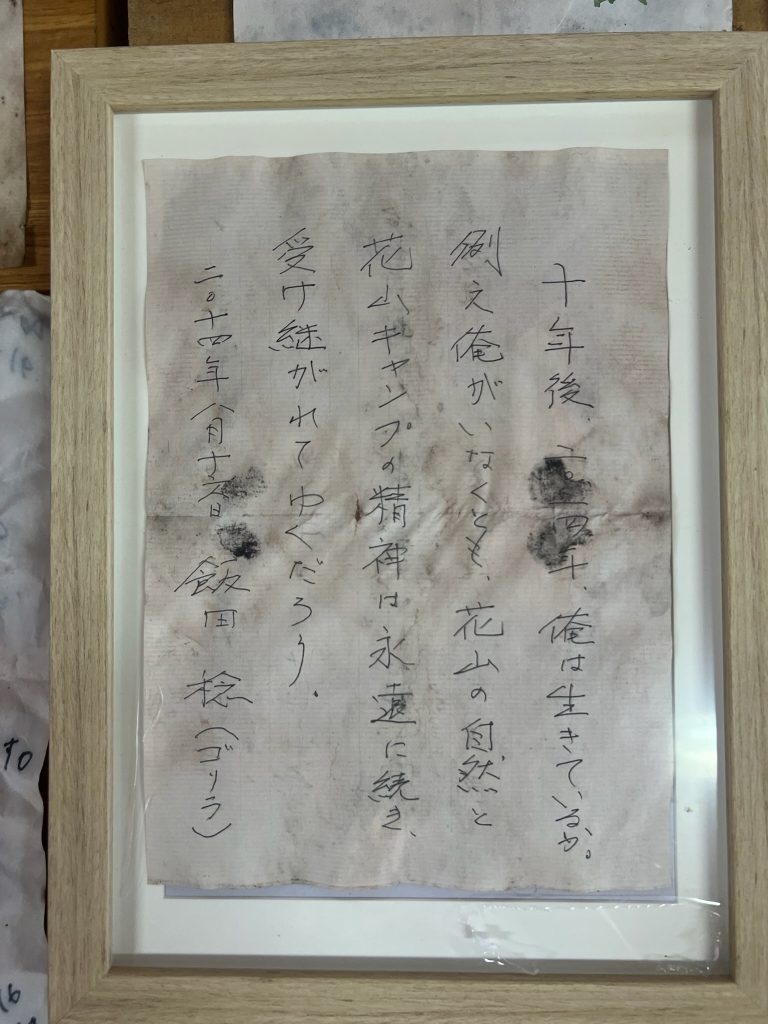 十年後、二〇二四年、俺は生きているか。
例え俺がいなくとも、花山の自然と
花山キャンプの精神は永遠に続き、
受け継がれてゆくだろう。
二〇十四年八月十六日 飯田 稔(ゴリラ)